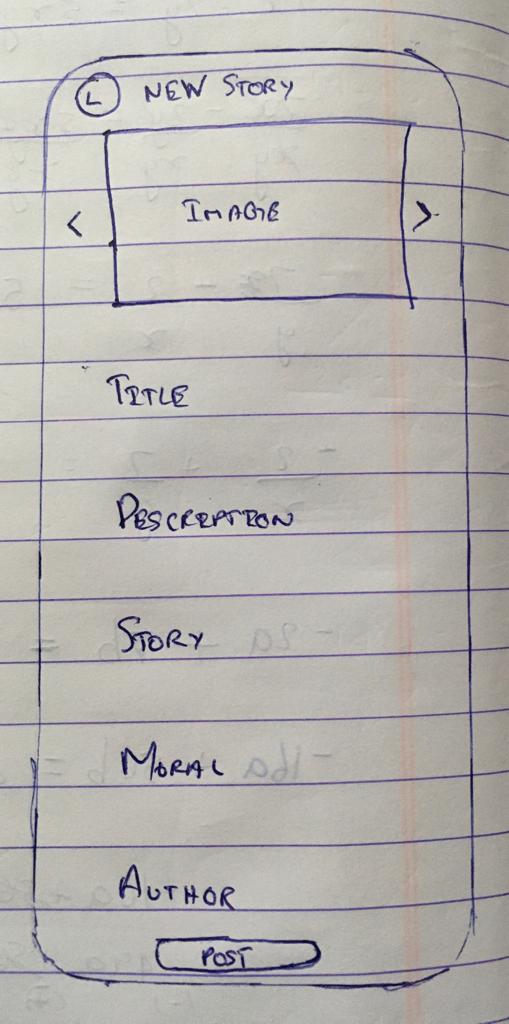 L NEW STORY
< IMAGE >
TITLE
DESCREPTION
STORY
MORAL
AUTHOR
POST